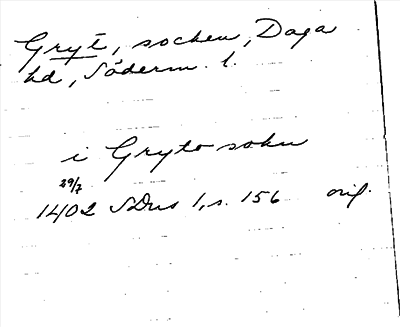 Gryt, socken, Daga
hd, Söderm. l.
i Gryto sokn
29/7
1402 SDns 1, s. 156 orig.